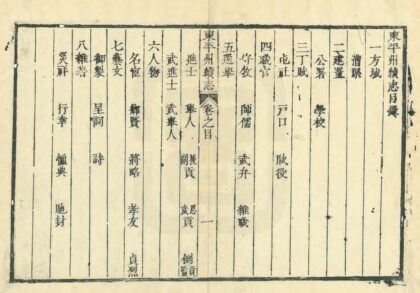 東平州續志目錄
一方域
漕渠
二建置
公署 學校
三丁賦
屯社 戶口 賦役
四職官
守牧 師儒 武弁 雜職
五選舉
東平州續志 卷之目 一
進士 舉人 恩貢 例貢
武進士 武舉人 歲貢
六人物
名宦 鄉賢 將略 孝友 貞烈
七藝文
御製 呈詞 詩
八雜著
災祥 行幸 恤典 貤封